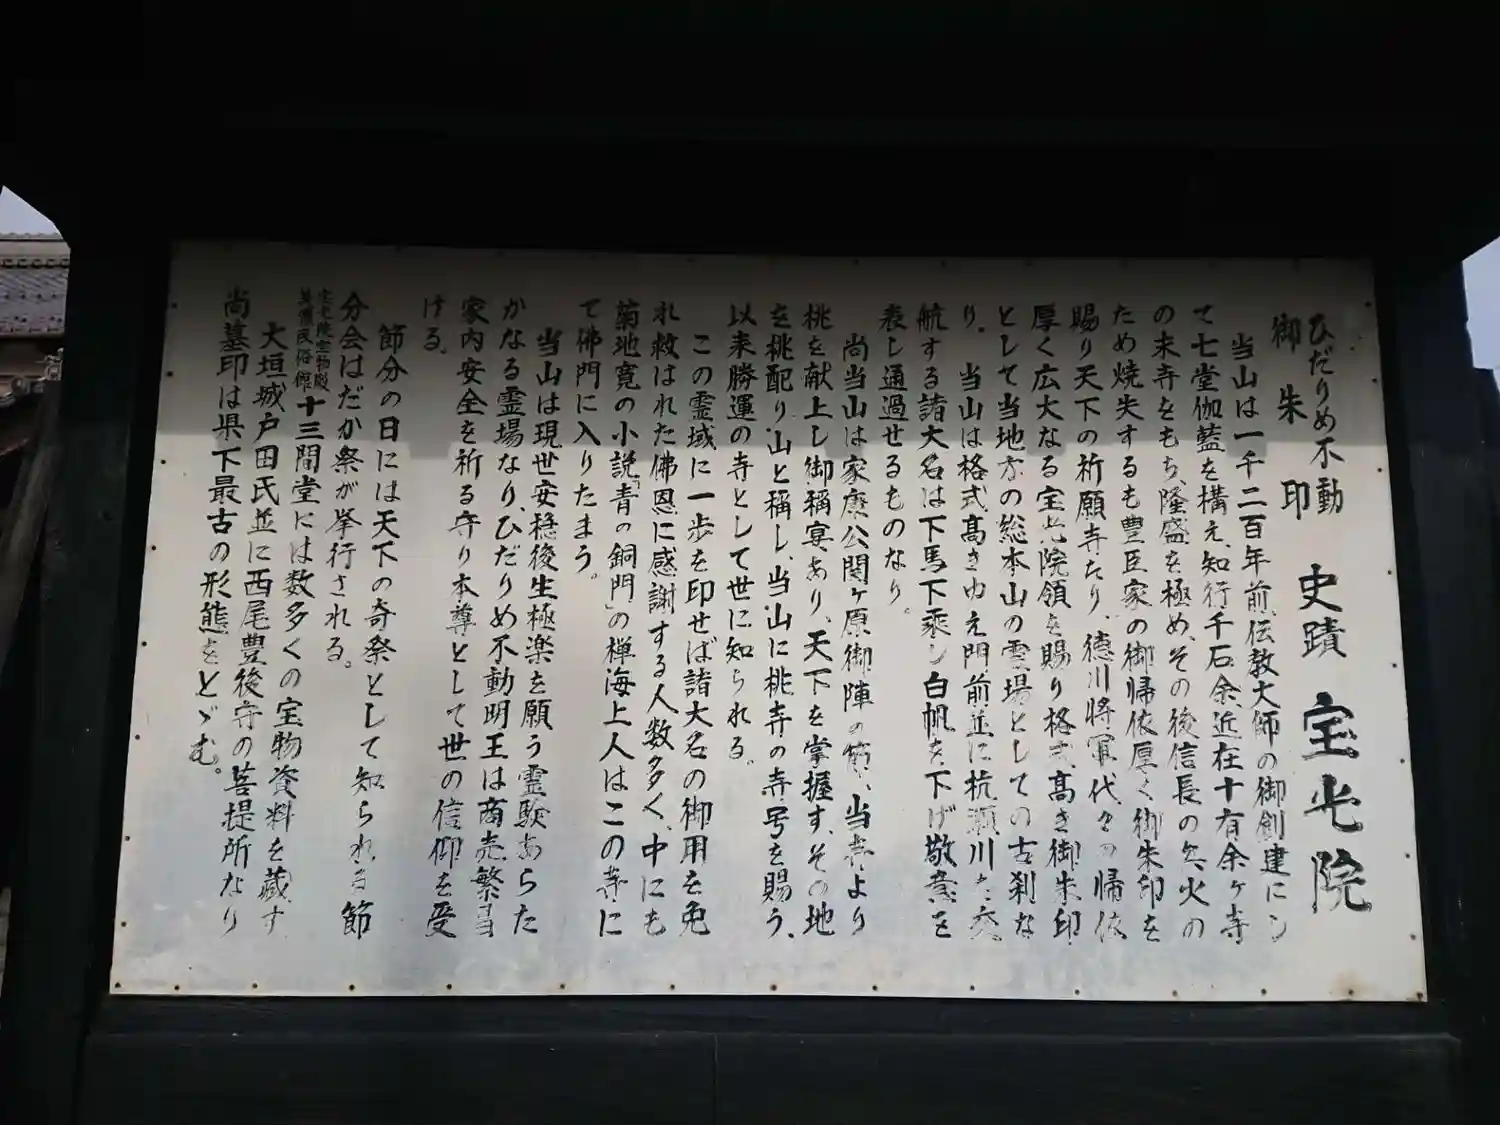 ひだりめ不動
御朱印
史蹟 宝光院
当山は一千二百年前、伝教大師の御創建にし
て七堂伽藍を構え、知行千石余、近在十有余ヶ寺
の末寺をもち、隆盛を極め、その後信長の兵火の
ため焼失するも豊臣家の御帰依厚く御朱印を
賜り天下の祈願寺たり、徳川将軍代々の帰依
厚く広大なる宝光院領を賜り格式高き御朱印
として当地方の総本山の霊場としての古刹な
り、当山は格式高きゆえ門前並に杭瀬川を交
航する諸大名は下馬下乗し白帆を下げ敬意を
表し通過せるものなり。
尚当山は家康公関ヶ原御陣の節、当寺より
桃を献上し御稱宴あり、天下を掌握す、その地
を桃配り山と稱し、当山に桃寺の寺号を賜う、
以来勝運の寺として世に知られる。
この霊域に一歩を印せば諸大名の御用を免
れ救はれた佛恩に感謝する人数多く、中にも
菊地寛の小説「青の銅門」の禅海上人はこの寺に
て佛門に入りたまう。
当山は現世安穏後生極楽を願う霊験あらた
かなる霊場なり、ひだりめ不動明王は商売繁昌
家内安全を祈る守り本尊として世の信仰を受
ける。
節分の日には天下の奇祭として知られる節
分会はだか祭が挙行される。
宝光院宝物殿
美濃民俗館
十三間堂には数多くの宝物資料を蔵す
大垣城戸田氏並に西尾豊後守の菩提所なり
尚墓印は県下最古の形態をとゞむ。